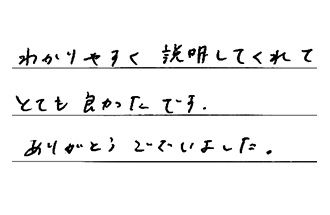 わかりやすく説明してくれて
とても良かったです.
ありがとうございました.